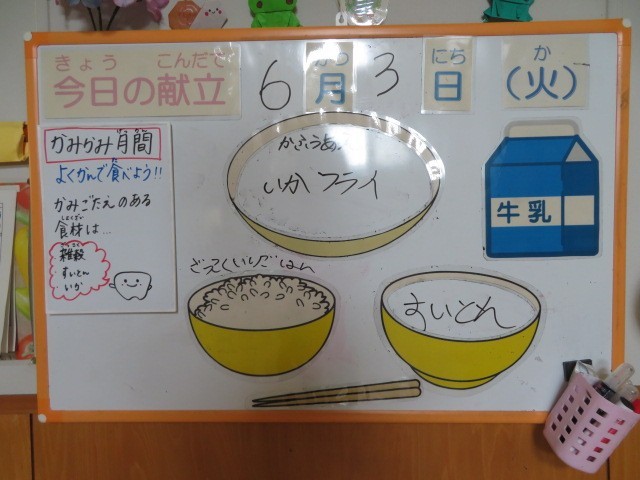 きょう こんだて
今日の献立
6月3日(火)
がつ にち か
かみかみ月間
よくかんで食べよう!!
かみごたえのある
食材は…
雑穀
すいとん
・いか
いかフライ
牛乳
ざっこくいりごはん
すいとん